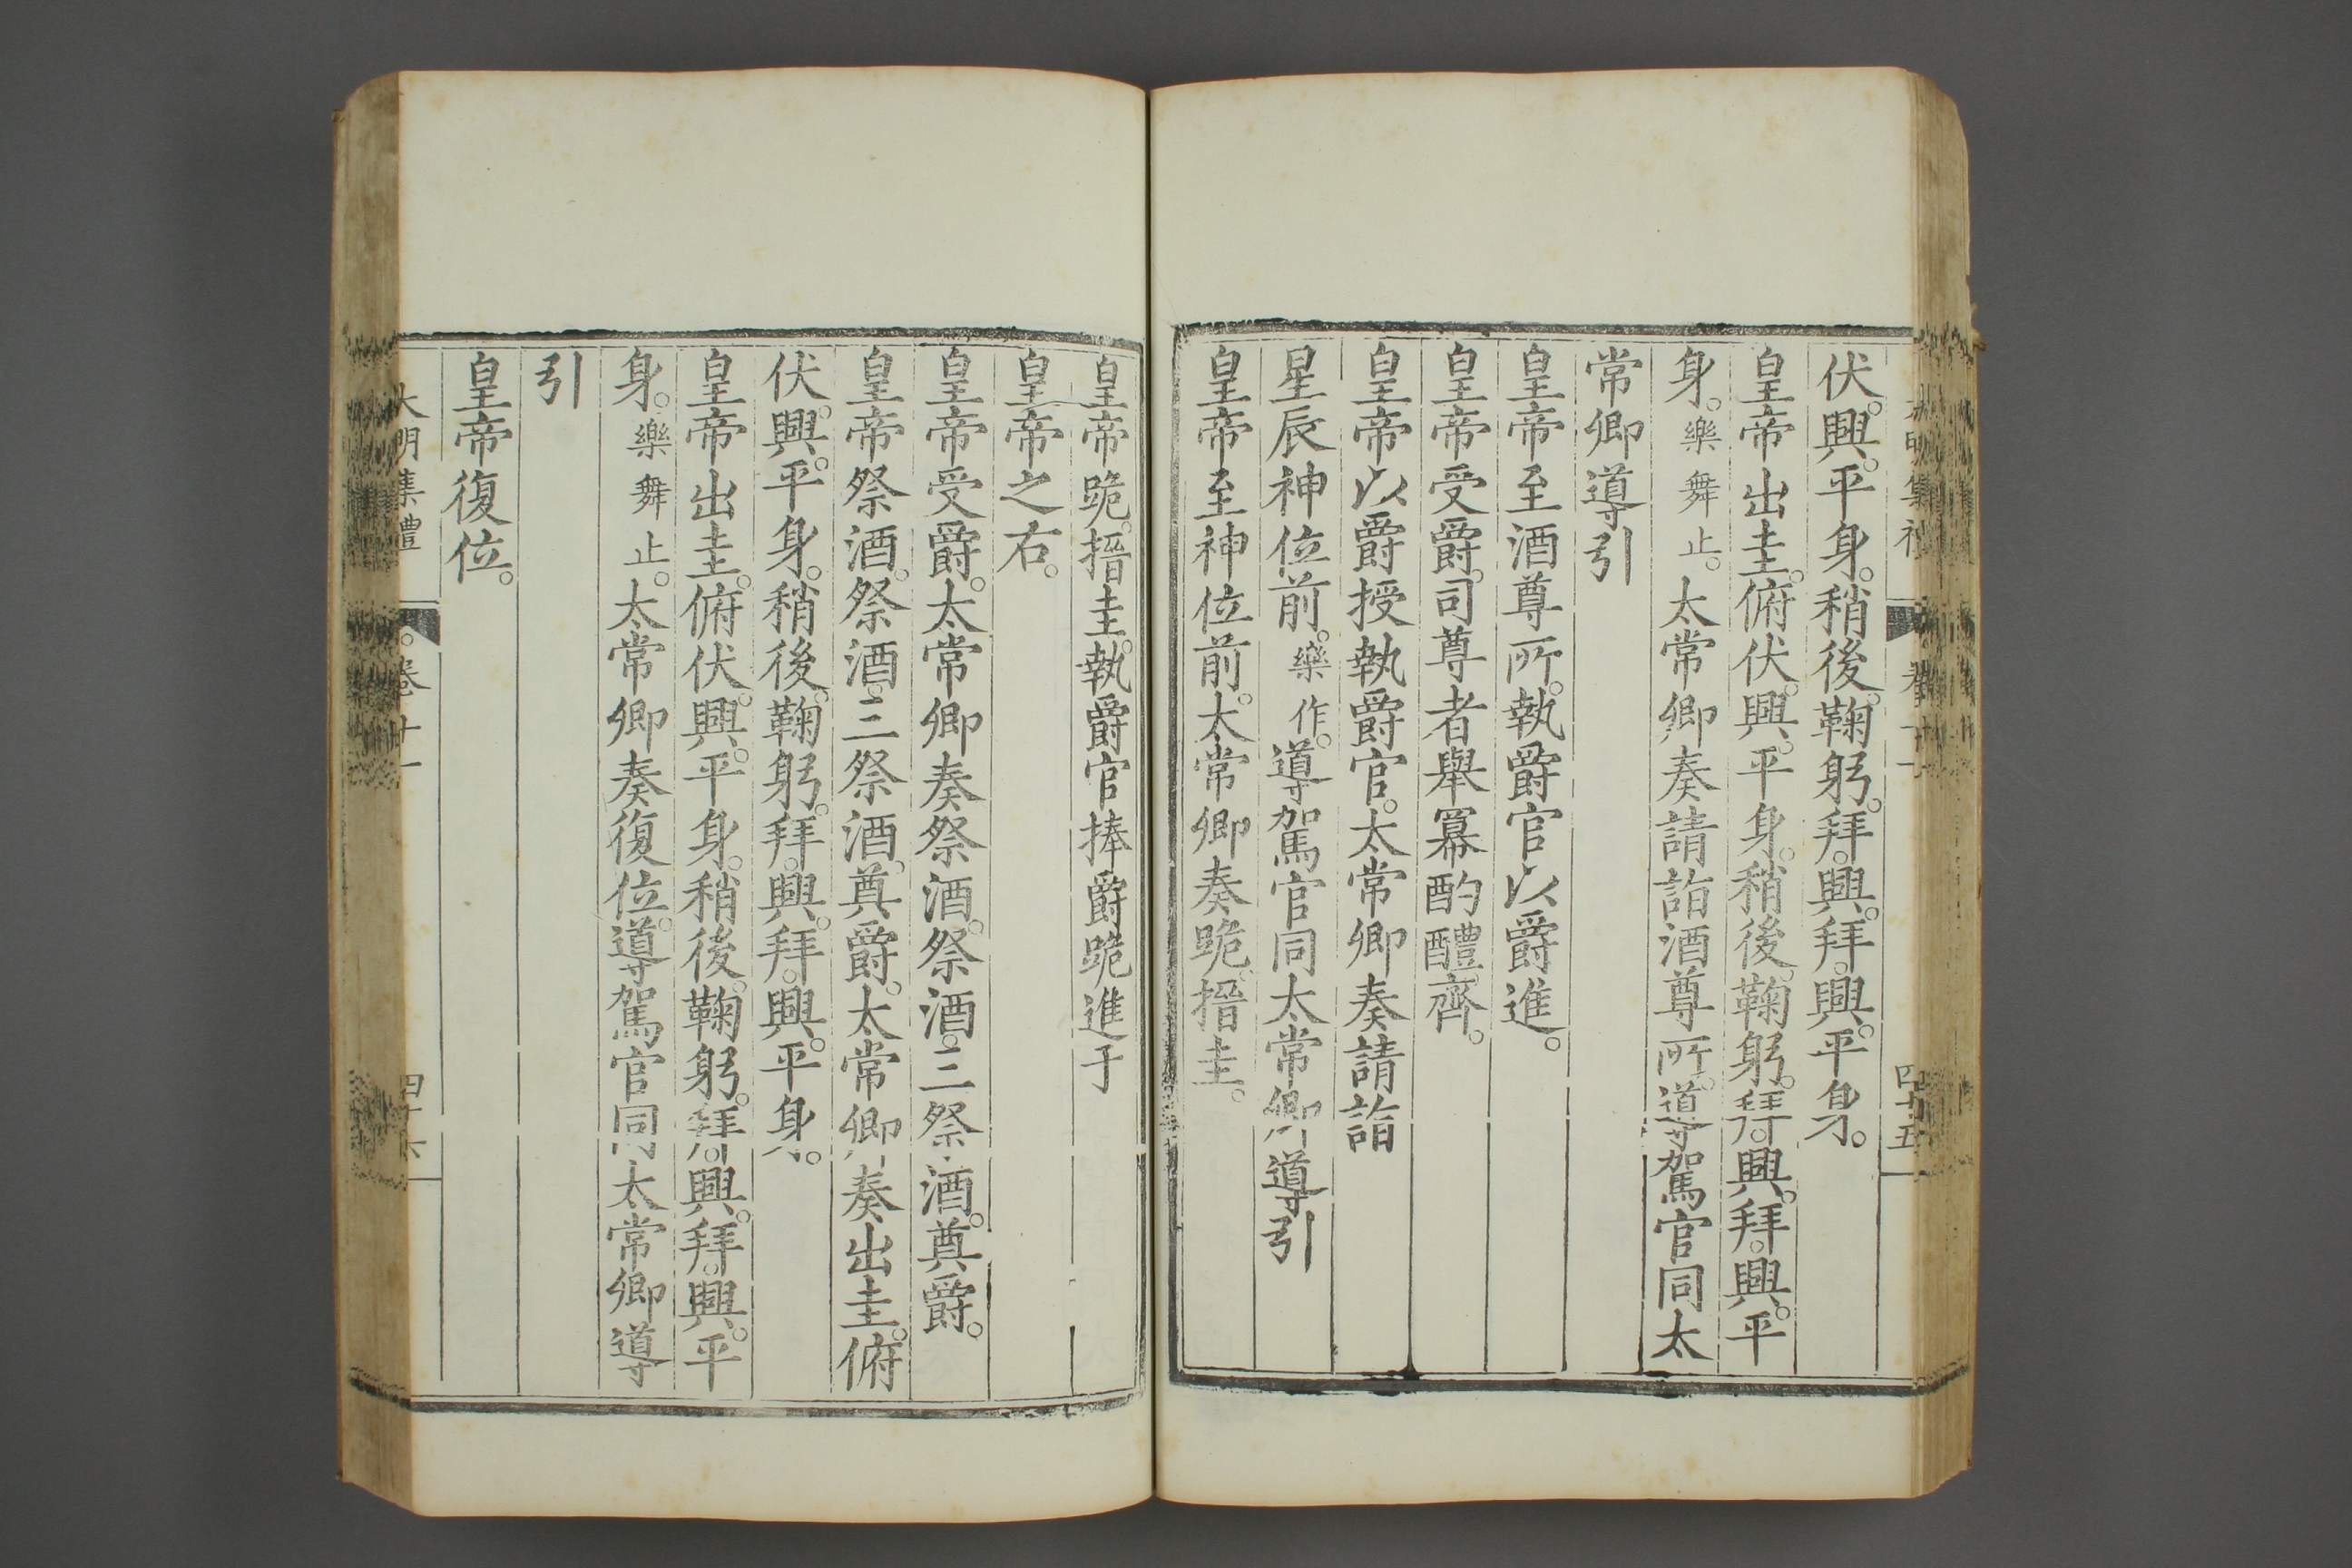 伏。興。平身。稍後。鞠躬。拜。興。拜。興。平身。
皇帝出圭。俯伏。興。平身。稍後。鞠躬。拜。興。拜。興。平
身。樂舞止。太常卿奏請詣酒尊所。導駕官同太
常卿導引
皇帝至酒尊所。執爵官以爵進。
皇帝受爵。司尊者舉冪酌醴齊。
皇帝以爵授執爵官。太常卿奏請詣
星辰神位前。樂作。導駕官同太常卿導引
皇帝至神位前。太常卿奏跪。搢圭。
皇帝跪。搢圭。執爵官捧爵跪進于
皇帝之右。
皇帝受爵。太常卿奏祭酒。祭酒。三祭酒。奠爵。
皇帝祭酒。祭酒。三祭酒。奠爵。太常卿奏出圭。俯
伏。興。平身。稍後。鞠躬。拜。興。拜。興。平身。
皇帝出圭。俯伏。興。平身。稍後。鞠躬。拜。興。拜。興。平
身。樂舞止。太常卿奏復位。導駕官同太常卿導
引
皇帝復位。
大明集禮 卷十一